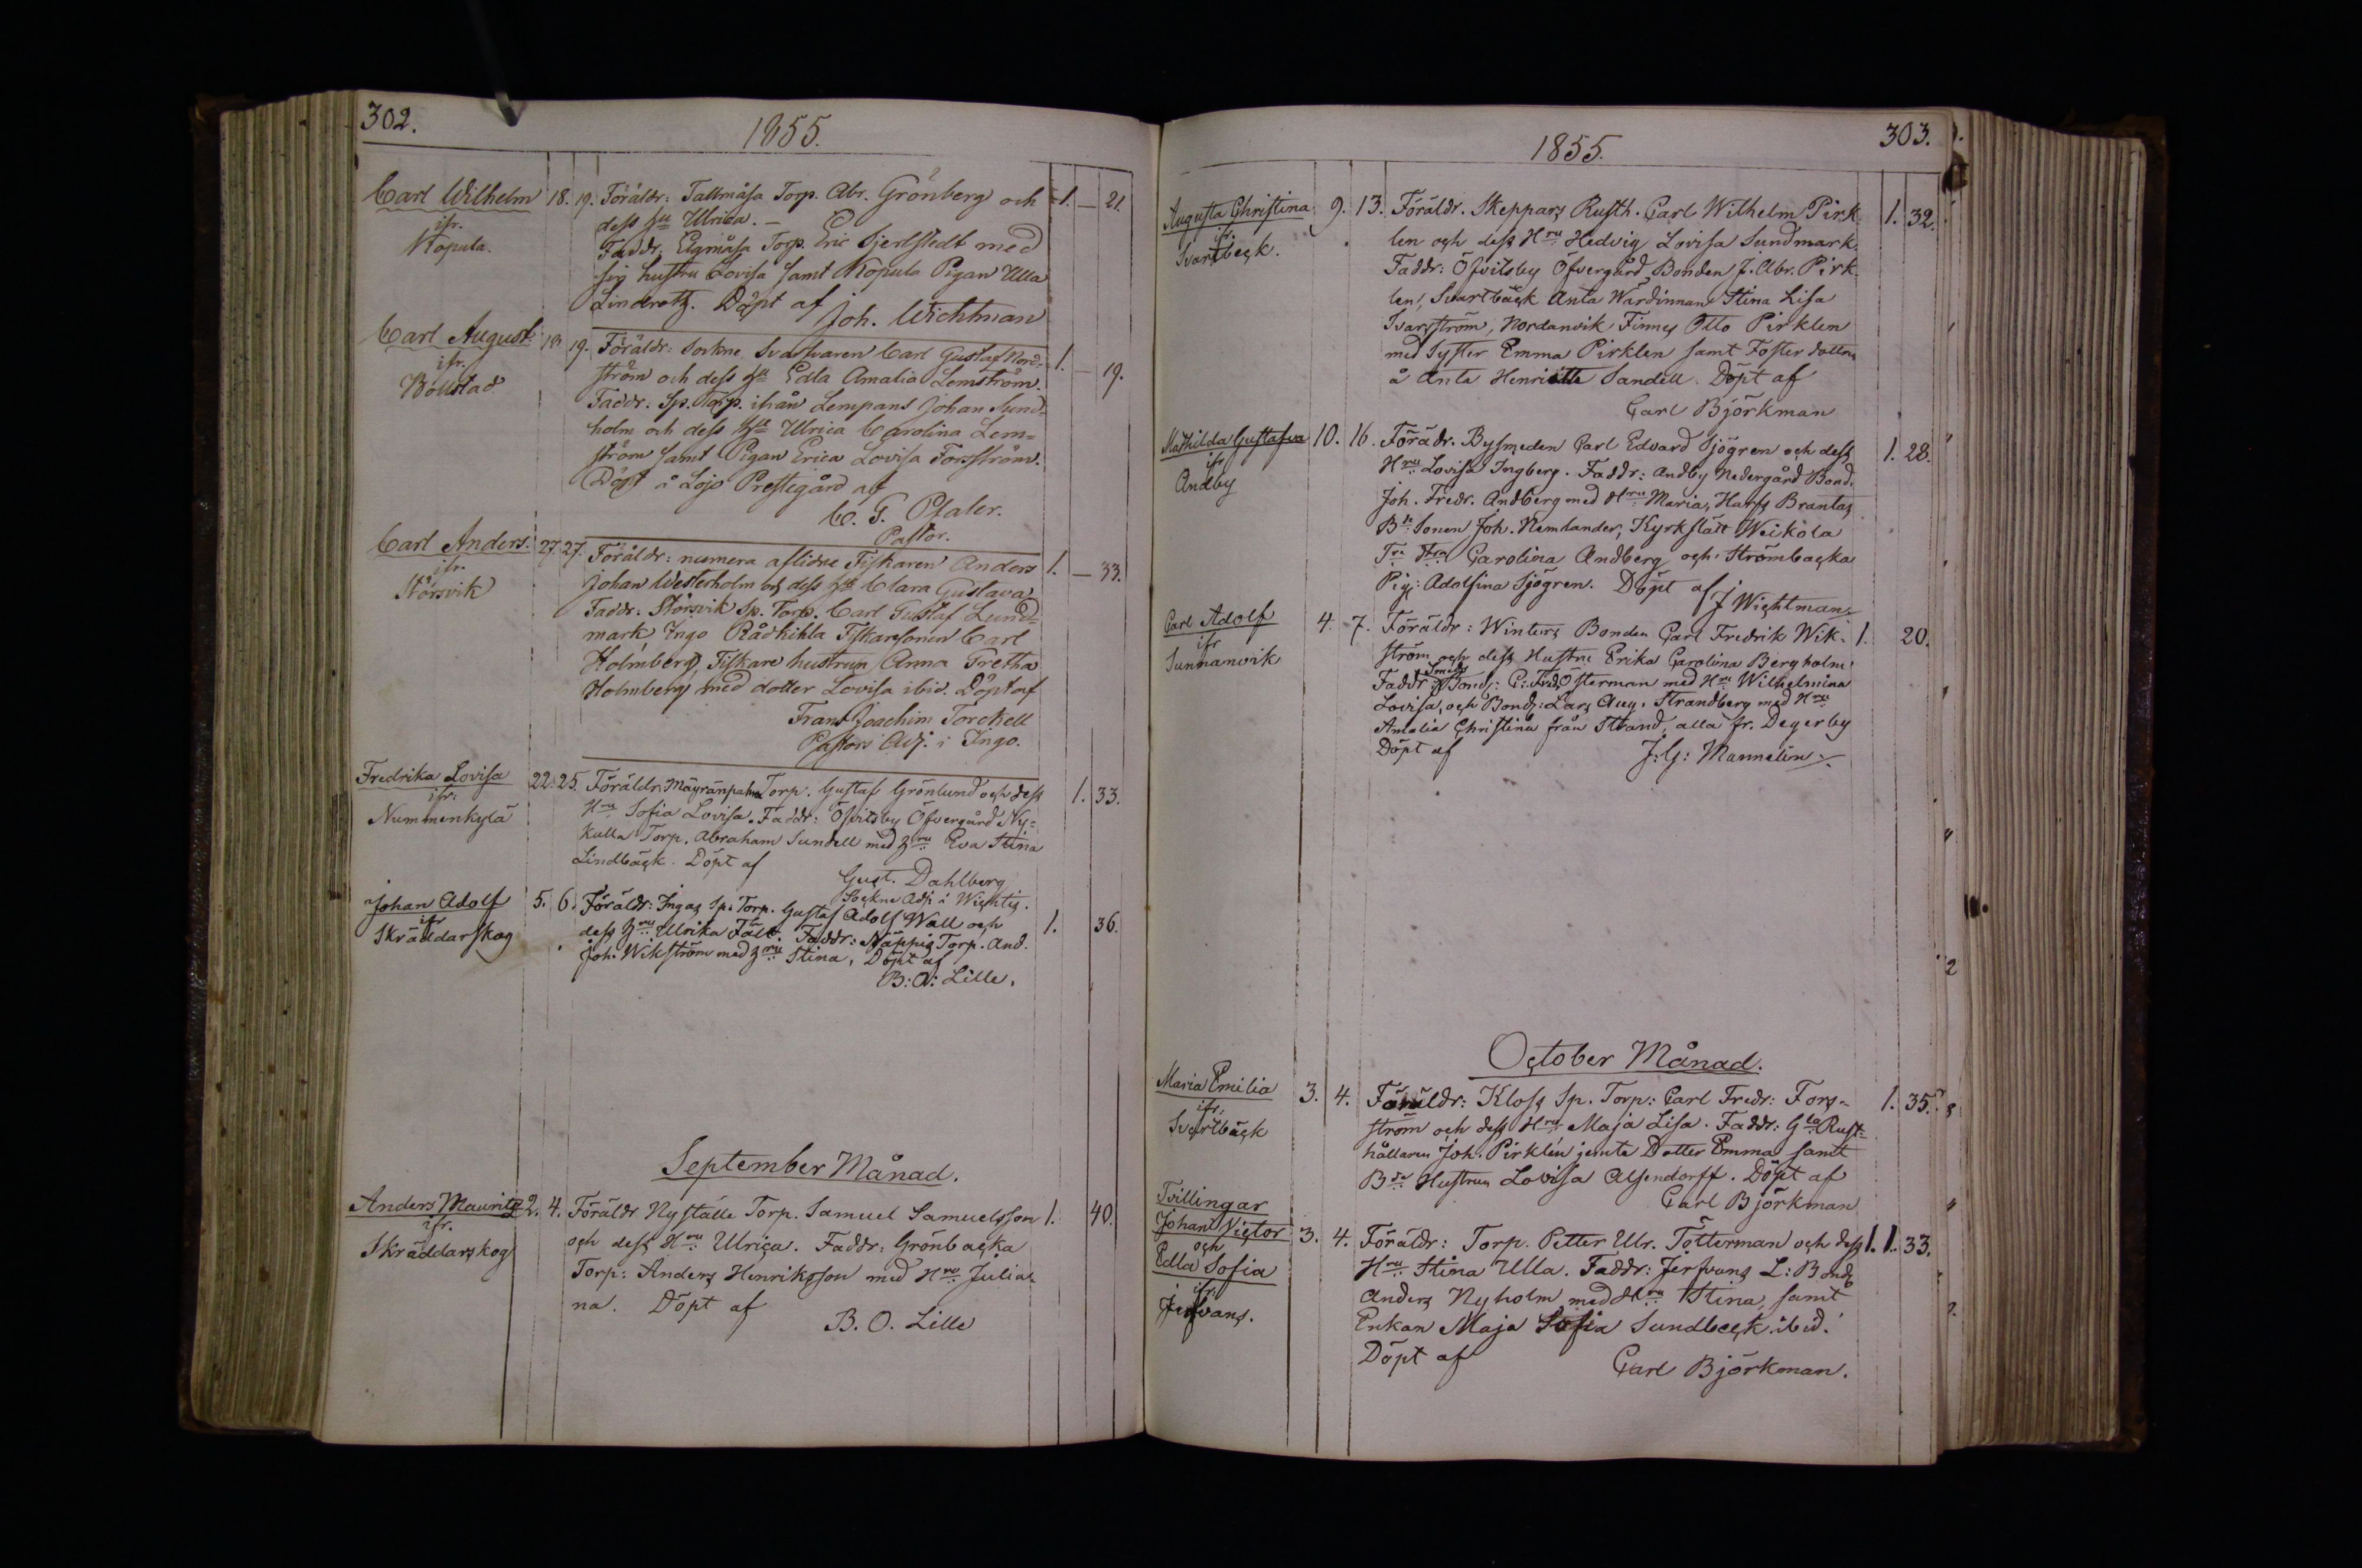 302.
1855.
Carl Wilhelm
ifr.
Kopula.
18. 19. Föräldr: Tallmåsa Torp. Abr. Grönberg och 1. — 21.
dess hu Ulrica. —
Faddr. Elgmåsa Torp. Eric Sjerlstedt med
sig hustru Lovisa samt Kopula Pigan Ulla
Lindrotz. Döpt af
Joh. Wichtman
Carl August
ifr.
Böllstad
19. Föräldr: Sockne Svarfvaren Carl Gustaf Nord= 1. — 19.
ström och dess hu Edla Amalia Lemström.
Faddr. Sp. Torp. ifrån Lempans Johan Sund=
holm och dess hu Ulrica Carolina Lem=
ström samt Pigan Erica Lovisa Forsström.
Döpt å Lojo Prestegård af
C. G. Pfaler.
Pastor.
Carl Anders.
ifr.
Störsvik
27 27. Föräldr: numera aflidne Fiskaren Anders 1. — 33.
Johan Westerholm och dess hu Clara Gustava
Faddr. Störsvik Sp. Torp. Carl Gustaf Lund=
mark Ingo Rådkihla Fiskaresonen Carl
Holmberg, Fiskare hustrun Anna Gretha
Holmberg med dotter Lovisa ibid. Döpt af
Frans Joachim Torckell
Pastors Adj. i Ingo.
Fredrika Lovisa
ifr:
Nummenkylä
22. 25. Föräldr: Torp. Gustaf Grönlund och dess 1. 33.
Hru Sofia Lovisa. Faddr: Öfvitsby Öfvergård Ny=
kulla Torp. Abraham Sundell med hru Eva Stina
Lindbäck. Döpt af
Gust. Dahlberg
Sockne Adj. i Wichtis.
Johan Adolf
ifr
Skräddarskog
5. 6. Föräldr: Ingas Sp. Torp. Gustaf Adolf Wall och 1. 36.
dess hru Ulrika Fält. Faddr: Näppis Torp. And.
Joh. Wikström med hru Stina, Döpt af
B: O: Lille.
September Månad.
Anders Mauritz
ifr.
Skräddarskog
2. 4. Föräldr Nyställe Torp. Samuel Samuelsson 1. 40.
och dess Hru Ulrica. Faddr: Grönbacka
Torp: Anders Henriksson med Hru Julia=
na. Döpt af
B. O. Lille
303.
1855.
Augusta Christina
ifr.
Svartbeck.
9. 13. Föräldr. Skeppars Rusth. Carl Wilhelm Pirk 1. 32.
len och dess Hru Hedvig Lovisa Sundmark.
Faddr: Öfvitsby Öfvergård Bonden J. Abr. Pirk=
len, Svartbäck Anta Wärdinnan Stina Lisa
Svarsström, Nordanvik Finnes Otto Pirklen
med Syster Emma Pirklen samt Foster dottren
å Anta Henriette Sandell. Döpt af
Carl Björkman
Mathilda Gustafva
ifr
Andby
10. 16. Förädr. Bysmeden Carl Edvard Sjögren och dess 1. 28.
Hru Lovisa Ingberg. Faddr: Andby Nedergård Bond.
Joh. Fredr. Andberg med Hru Maria, Brantas
Bde Sonen Joh. Nemlander, Kyrkslätt Weikola
Carolina Andberg och Strömbacka
Pig: Adolfina Sjögren. Döpt af J Wichtman
Carl Adolf
ifr
Sunnanvik
4. 7. Föräldr: Winters Bonden Carl Fredrik Wik= 1. 20.
ström och dess Hustru Erika Carolina Bergholm.
Smeds
Faddr Bond: C: Fred. Österman med Hru Wilhelmina
Lovisa, och Bond: Lars Aug. Strandberg med Hru
Amalia Christina från Strand, alla fr. Degerby
Döpt af J: G: Mannelin
October Månad.
Maria Emilia
ifr.
Svartbäck
3. 4. Föräldr: Kloss Sp. Torp: Carl Fredr: Fors= 1. 35.
ström och dess Hru Maja Lisa. Faddr: Gla Rust=
hållaren Joh. Pirklén jemte Dotter Emma samt
Bde Hustrun Lovisa Alsendorff. Döpt af
Carl Björkman
Tvillingar
Johan Victor
och
Edla Sofia
ifr:
Jerfvans.
3. 4. Föräldr: Torp. Petter Ulr. Tötterman och dess 1. 1. 33.
Hru Stina Ulla. Faddr: Jerfvans L: Bonde
Anders Nyholm med Hru Stina, samt
Enkan Maja Sofia Sundbeck ibid.
Döpt af
Carl Björkman.